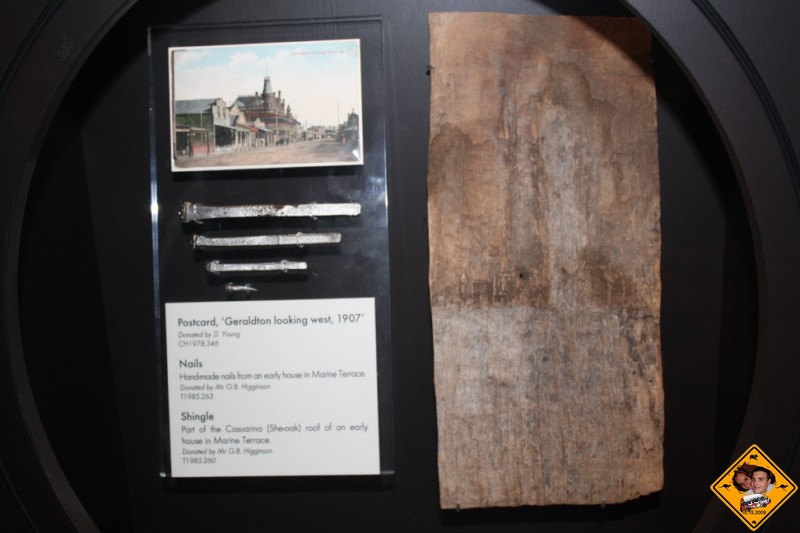 Postcard, 'Geraldton looking west, 1907'
Donated by D. Young
CH1978.346
Nails
Hand-made nails from an early house in Marine Terrace.
Donated by Mr G.B. Higginson
T1985.263
Shingle
Part of the Casuarina (She-oak) roof of an early
house in Marine Terrace.
Donated by Mr G.B. Higginson
T1985.260